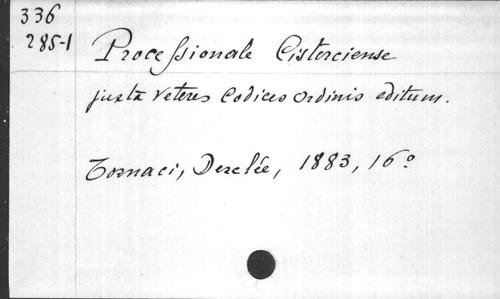 336
285-1
Processionale Cisterciense
juxta veteres Codices Ordinis editum.
Tornaci, Desclée, 1883, 16°